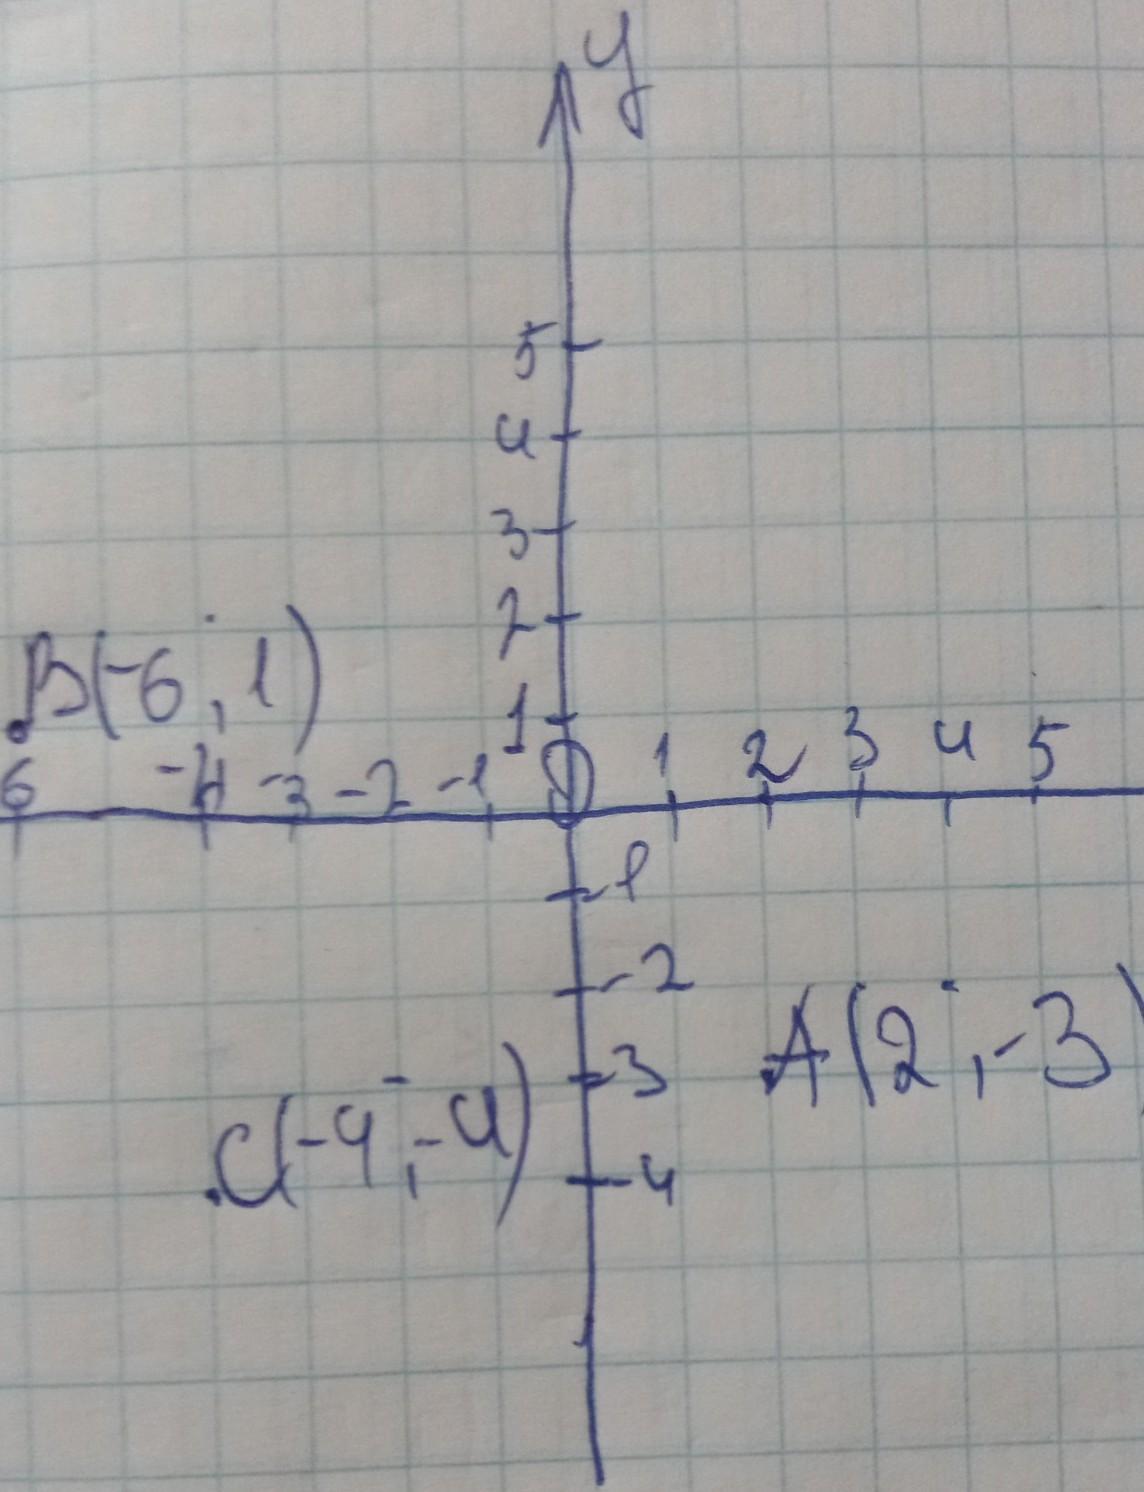 y
5
4
3
2
B(-6; 1)
1
6 -4 -3 -2 -1 0 1 2 3 4 5
-1
-2
A(2; -3)
-3
C(-4; -4)
-4